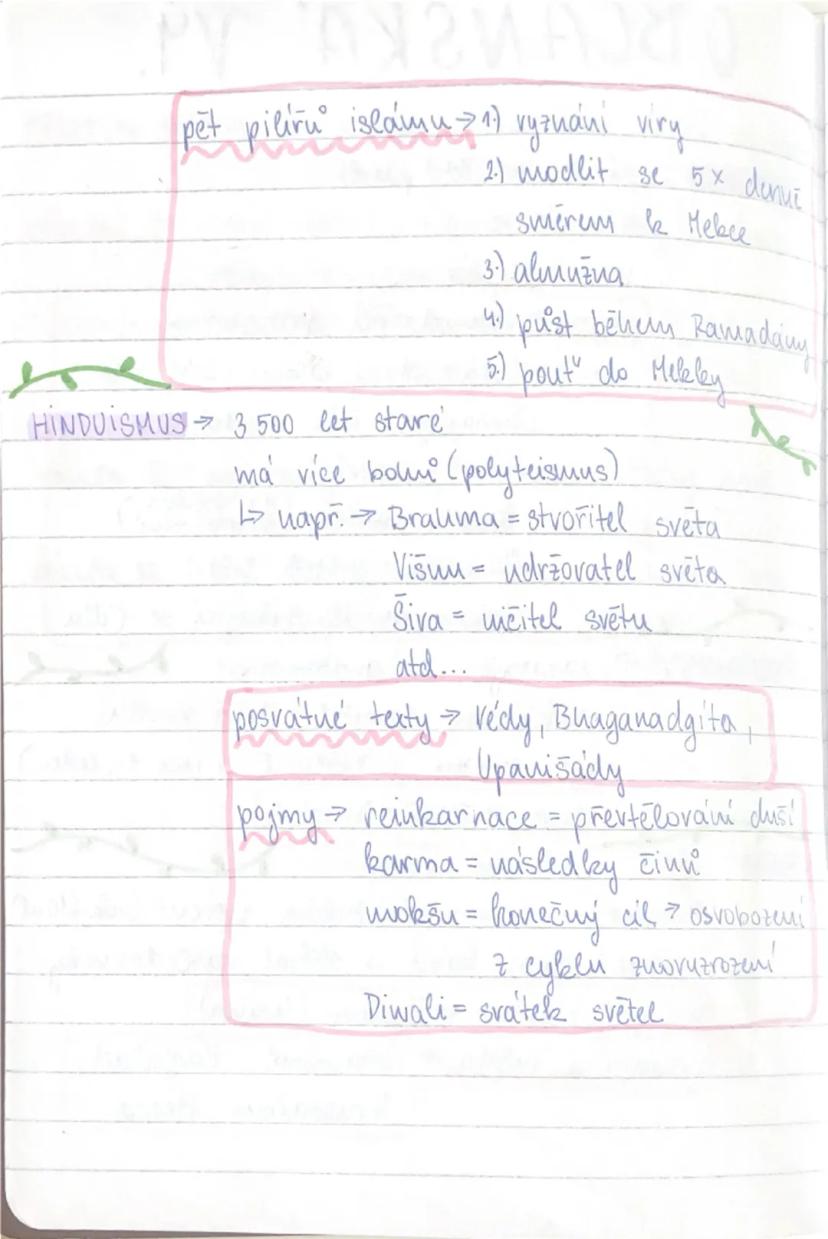 pět pilířů islámu → 1.) vyznání víry
2.) modlit se 5x denně
směrem k Mekce
3.) almužna
4.) půst během Ramadánu
5.) pouť do Mekky
HINDUISMUS → 3 500 let staré
má více bohů (polyteismus)
↳ např. → Brahma = stvořitel světa
Višnu = udržovatel světa
Šiva = ničitel světu
atd...
posvátné texty → Védy, Bhaganadgíta,
Upanišády
pojmy → reinkarnace = převtělování duší
karma = následky činů
mokšu = konečný cíl → osvobození
z cyklu znovuzrození
Diwali = svátek světel